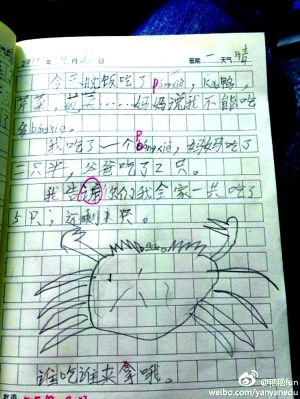 星期 一 天气 晴
今天晚饭吃了pángxiè，kǎo鸭，
菜，……妈妈说我不能吃
多bángxiè。
我吃了一个bángxiè，妈妈吃了
二只半，爸爸吃了2只。
我告诉你们我全家一共吃了
5只；还剩1只。
谁吃谁来拿哦。
@艳艳fun
weibo.com/yanyanedu